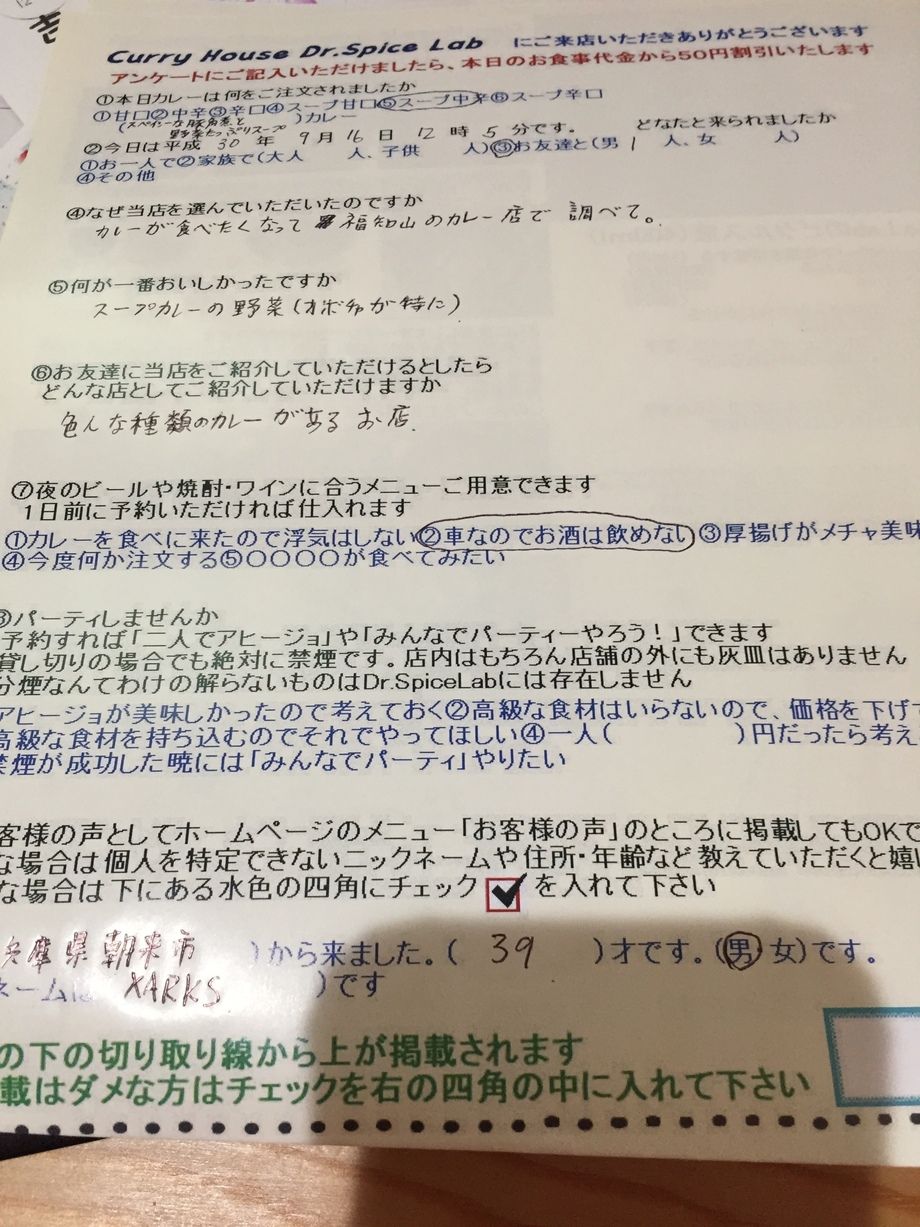 Curry House Dr.Spice Lab にご来店いただきありがとうございます
アンケートにご記入いただけましたら、本日のお食事代金から50円割引いたします
①本日カレーは何をご注文されましたか
①甘口②中辛③辛口④スープ甘口⑤スープ中辛⑥スープ辛口
(スペイシーな豚角煮と )カレー
野菜たっぷりスープ
②今日は平成 30 年 9月 16 日 12 時 5 分です。 どなたと来られましたか
①お一人で②家族で(大人 人、子供 人)③お友達と(男 1 人、女 人)
④その他
④なぜ当店を選んでいただいたのですか
カレーが食べたくなって 福知山のカレー店で 調べて。
⑤何が一番おいしかったですか
スープカレーの野菜(カボチャが特に)
⑥お友達に当店をご紹介していただけるとしたら
どんな店としてご紹介していただけますか
色んな種類のカレーがあるお店.
⑦夜のビールや焼酎・ワインに合うメニューご用意できます
1日前に予約いただければ仕入れます
①カレーを食べに来たので浮気はしない②車なのでお酒は飲めない③厚揚げがメチャ美味
④今度何か注文する⑤〇〇〇〇が食べてみたい
パーティしませんか
予約すれば「二人でアヒージョ」や「みんなでパーティーやろう！」できます
貸し切りの場合でも絶対に禁煙です。店内はもちろん店舗の外にも灰皿はありません
分煙なんてわけの解らないものはDr.SpiceLabには存在しません
アヒージョが美味しかったので考えておく②高級な食材はいらないので、価格を下げて
高級な食材を持ち込むのでそれでやってほしい④一人( )円だったら考え
禁煙が成功した暁には「みんなでパーティ」やりたい
客様の声としてホームページのメニュー「お客様の声」のところに掲載してもOKで
な場合は個人を特定できないニックネームや住所・年齢など教えていただくと嬉し
な場合は下にある水色の四角にチェック ✔ を入れて下さい
兵庫県朝来市 )から来ました。( 39 )才です。(男 女)です。
ネームは XARKS )です
の下の切り取り線から上が掲載されます
載はダメな方はチェックを右の四角の中に入れて下さい